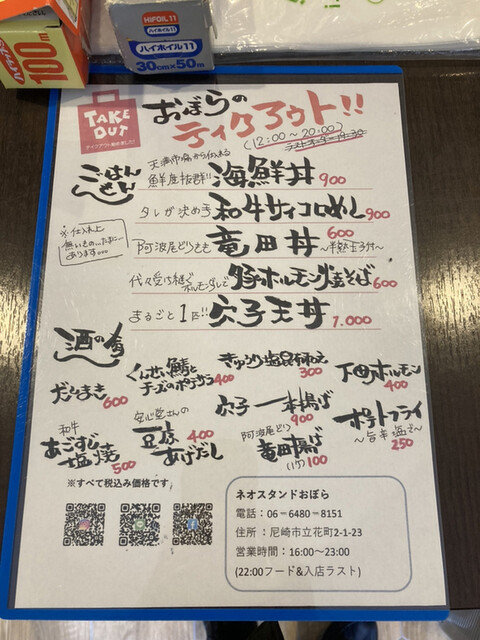 100m
HIFOIL 11
ハイホイル11
ハイホイル11
30cm×50m
TAKE
OUT
テイクアウト始めました!
おぼらの
テイクアウト!!
(12:00〜20:00)
ラストオーダー19:30
ごはんもん
天満市場から仕入れる
鮮度抜群!! 海鮮丼 900
タレが決め手 和牛サイコロめし 900
※仕入れ上
無いもの…たまに…
あります…
阿波尾どりもも 竜田丼 600
〜半熟玉子付〜
代々受け継ぐ
ホルモンだしで 豚ホルモン焼そば 600
まるごと1匹!! 穴子天丼 1.000
酒の肴
だしまき 600
くんせい鯖と
チーズのポテサラ 400
きゅうり塩昆布和え
300
下町ホルモン
400
和牛
あごすじ
塩焼 500
安心堂さんの
豆腐 400
あげだし
穴子一本揚げ
900
阿波尾どり
竜田揚げ
(1ケ) 100
ポテトフライ
〜旨辛塩で〜
250
※すべて税込み価格です
ネオスタンドおぼら
電話:06－6480－8151
住所 :尼崎市立花町2-1-23
営業時間:16:00〜23:00
(22:00フード&入店ラスト)